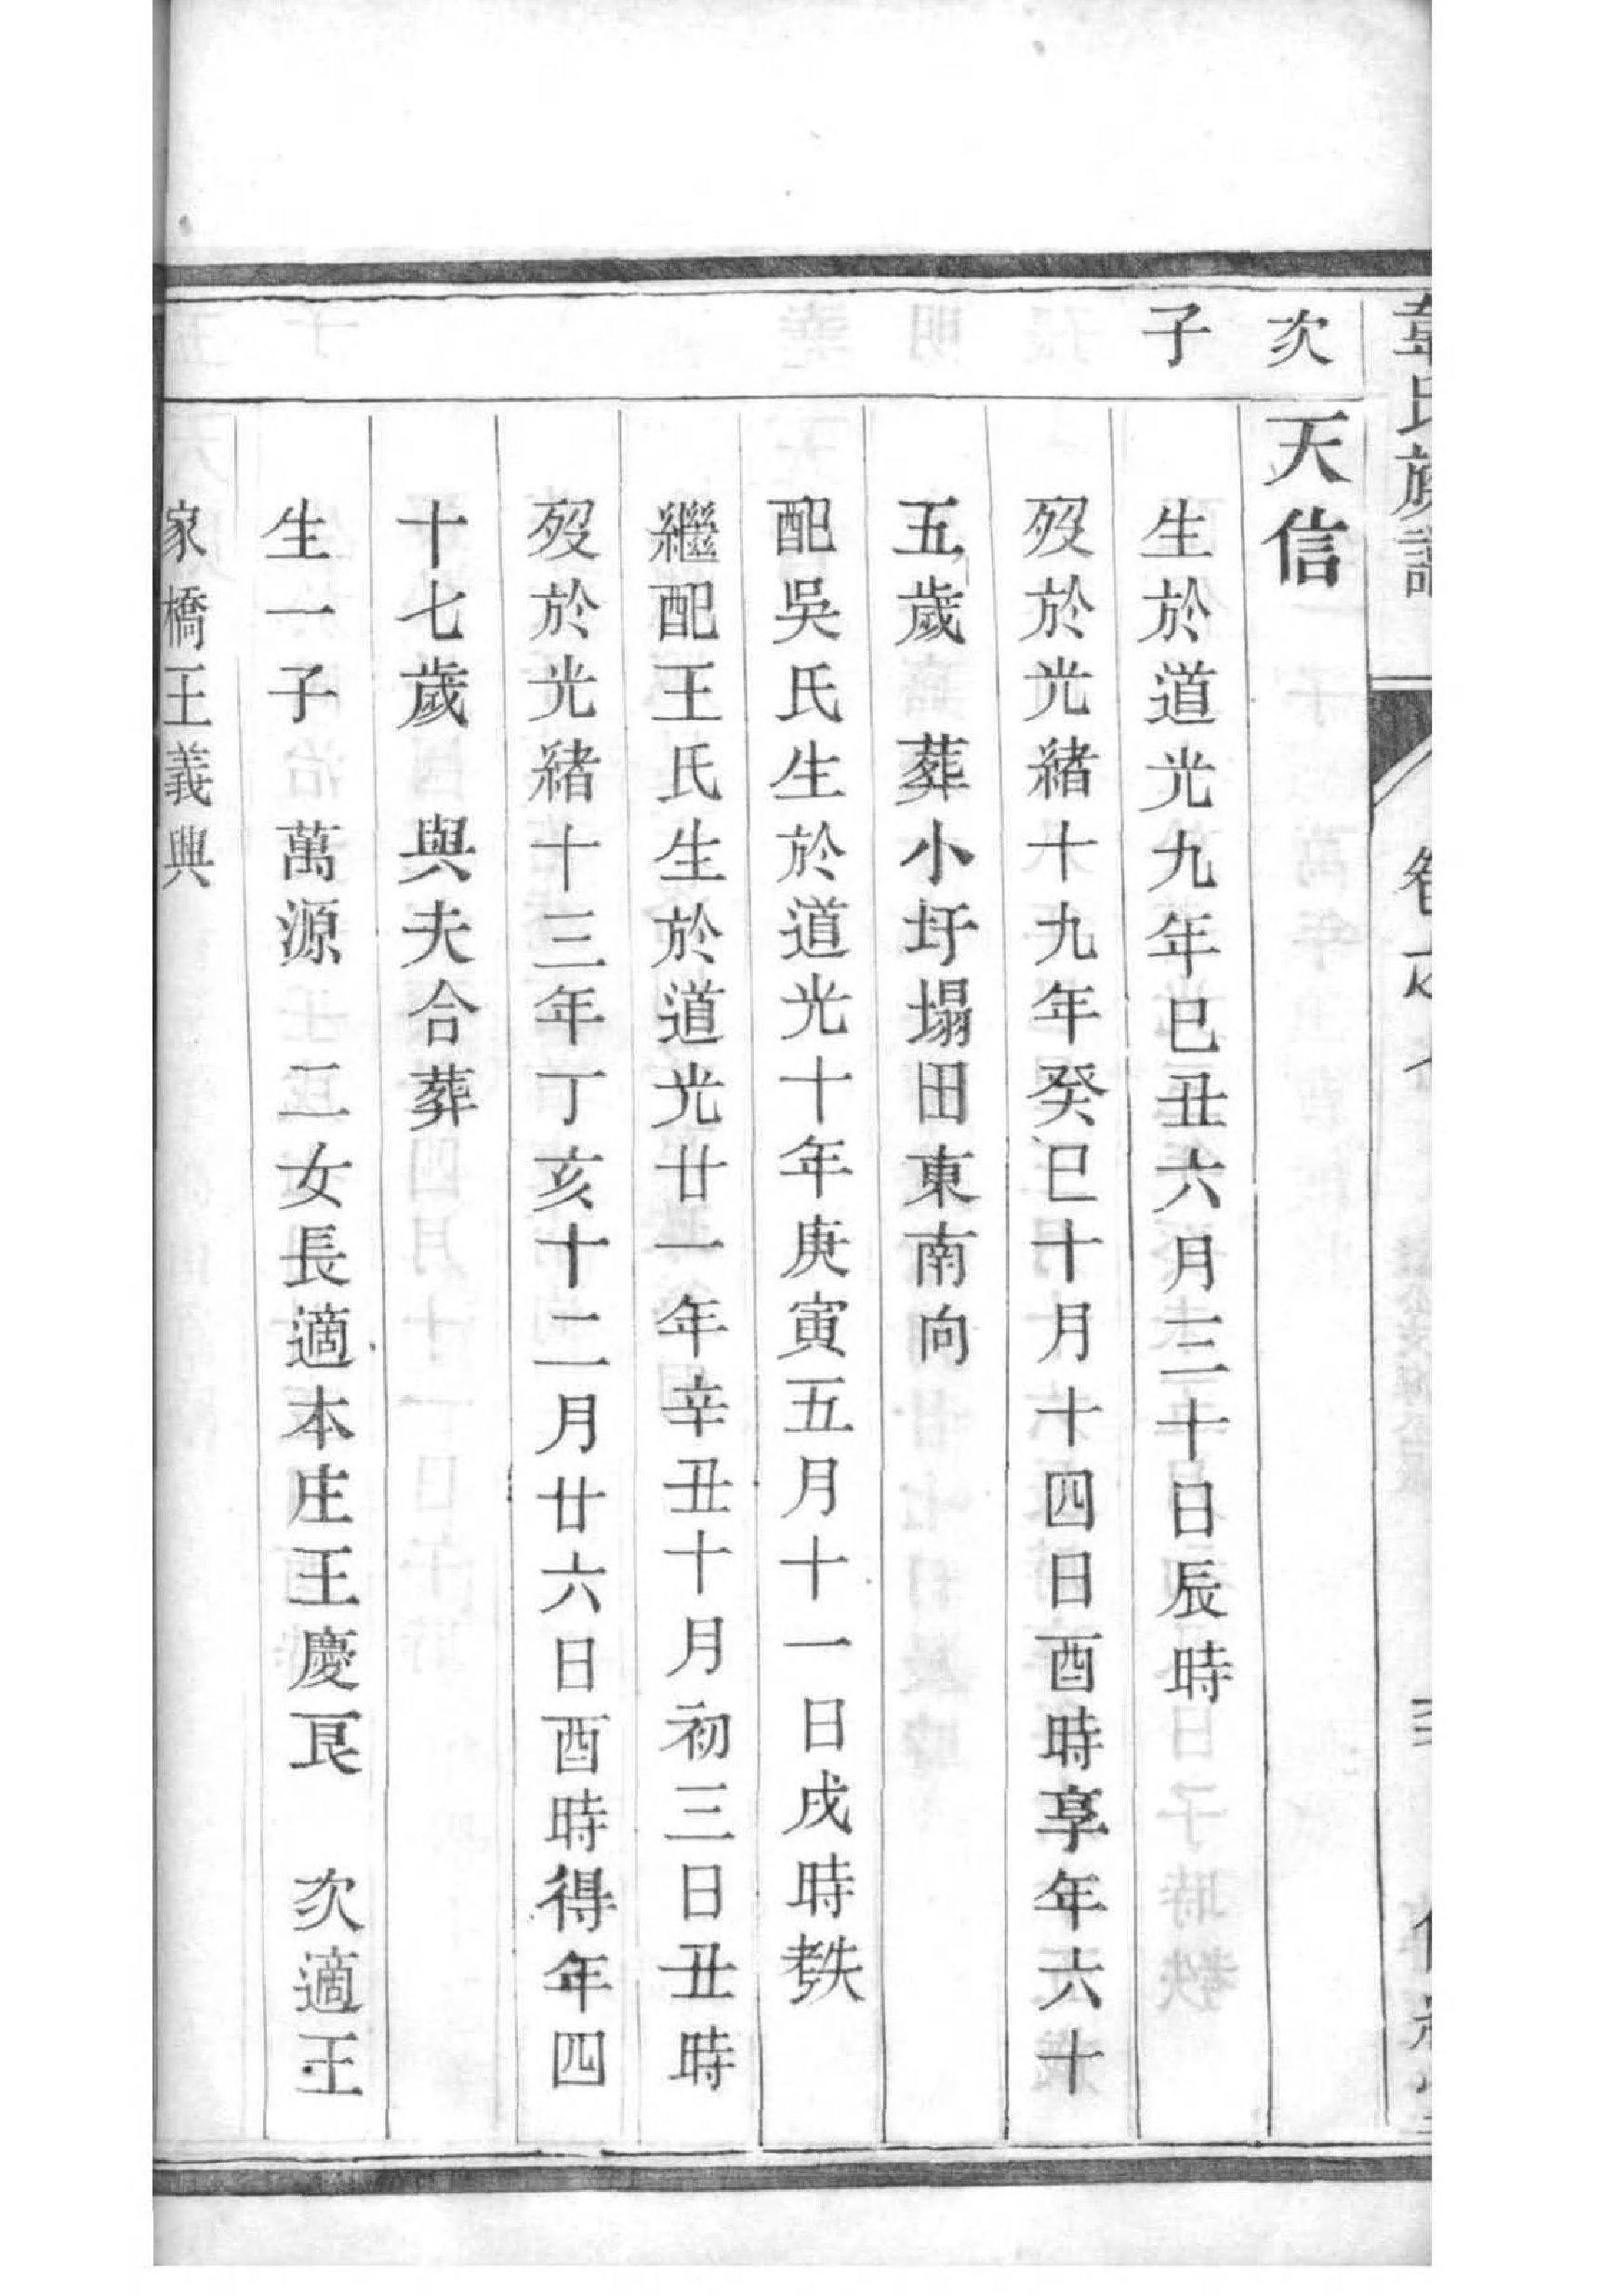 韋氏族譜
次子
天信
生於道光九年已丑六月三十日辰時
歿於光緒十九年癸巳十月十四日酉時享年六十
五歲　葬小圩塌田東南向
配吳氏生於道光十年庚寅五月十一日戌時
繼配王氏生於道光廿一年辛丑十月初三日丑時
歿於光緒十三年丁亥十二月廿六日酉時得年四
十七歲　與夫合葬
生一子　萬源　二女長適本庄王慶艮　次適王
家橋王義興